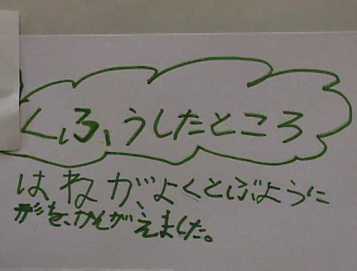 くふうしたところ
はねがよくとぶように
形を、かんがえました。